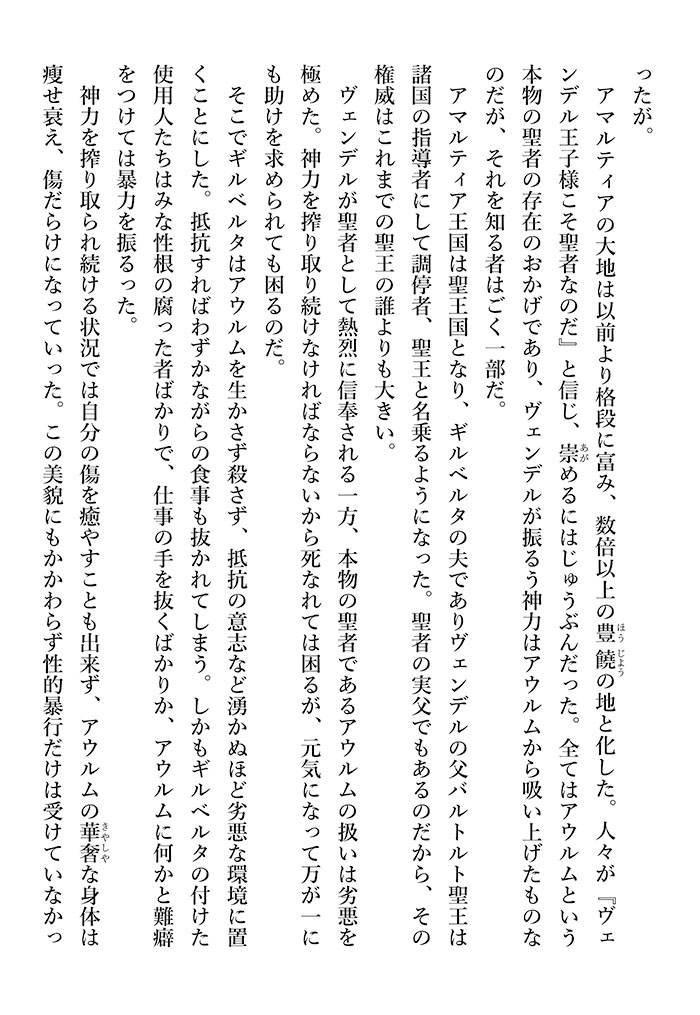 ったが。
　アマルティアの大地は以前より格段に富み、数倍以上の豊饒の地と化した。人々が『ヴェ
ンデル王子様こそ聖者なのだ』と信じ、崇めるにはじゅうぶんだった。全てはアウルムという
本物の聖者の存在のおかげであり、ヴェンデルが振るう神力はアウルムから吸い上げたものな
のだが、それを知る者はごく一部だ。
　アマルティア王国は聖王国となり、ギルベルタの夫でありヴェンデルの父バルトルト聖王は
諸国の指導者にして調停者、聖王と名乗るようになった。聖者の実父でもあるのだから、その
権威はこれまでの聖王の誰よりも大きい。
　ヴェンデルが聖者として熱烈に信奉される一方、本物の聖者であるアウルムの扱いは劣悪を
極めた。神力を搾り取り続けなければならないから死なれては困るが、元気になって万が一に
も助けを求められても困るのだ。
　そこでギルベルタはアウルムを生かさず殺さず、抵抗の意志など湧かぬほど劣悪な環境に置
くことにした。抵抗すればわずかながらの食事も抜かれてしまう。しかもギルベルタの付けた
使用人たちはみな性根の腐った者ばかりで、仕事の手を抜くばかりか、アウルムに何かと難癖
をつけては暴力を振るった。
　神力を搾り取られ続ける状況では自分の傷を癒やすことも出来ず、アウルムの華奢な身体は
痩せ衰え、傷だらけになっていった。この美貌にもかかわらず性的暴行だけは受けていなかっ